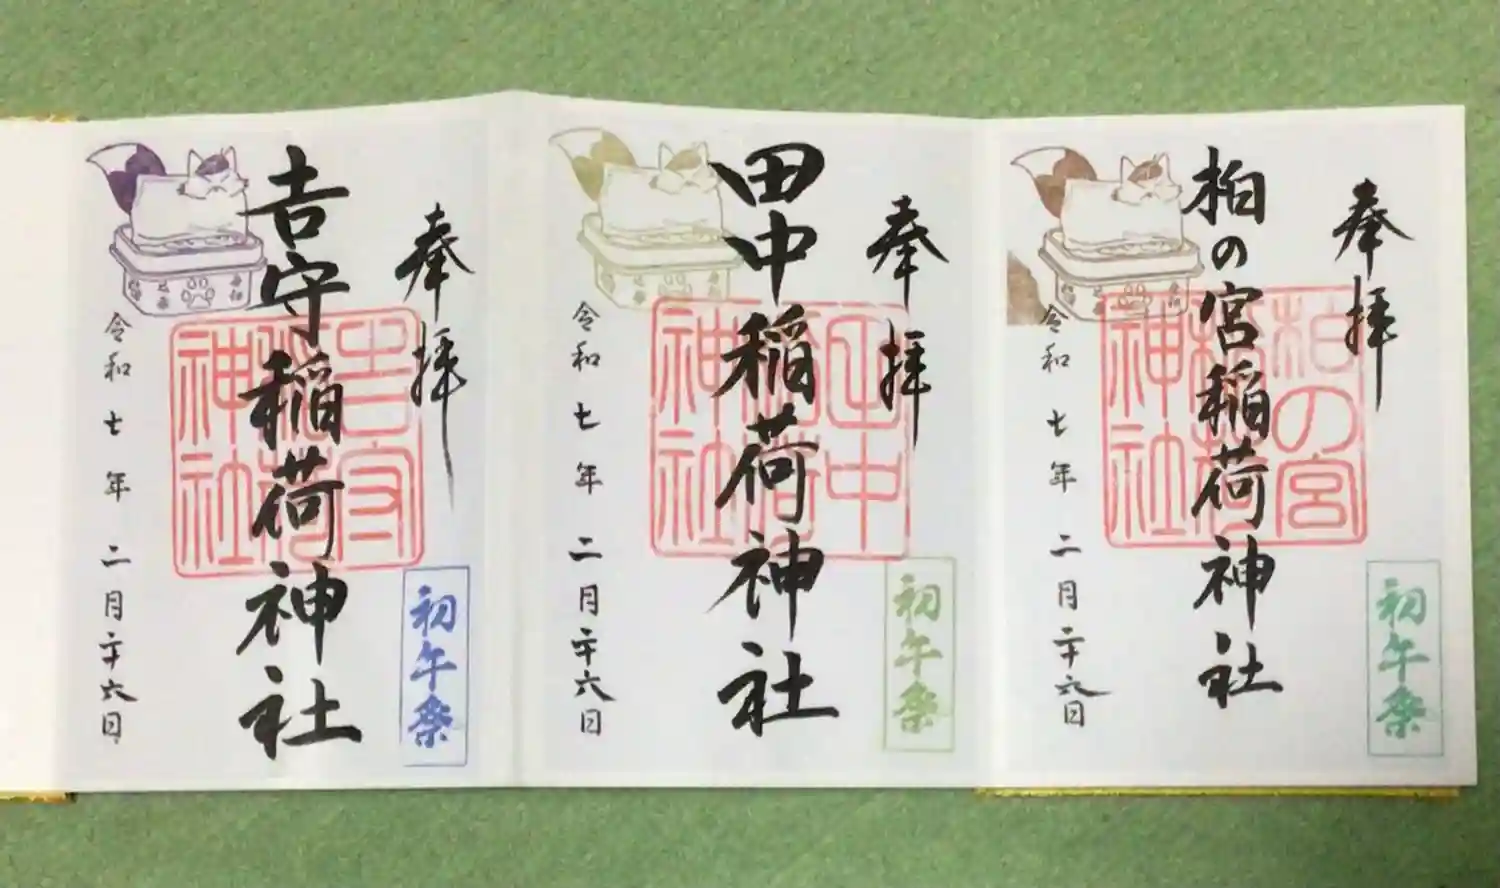 奉拝
柏の宮稲荷神社
柏の宮
稲荷
神社
初午祭
令和七年二月二十六日
奉拝
田中稲荷神社
田中
稲荷
神社
初午祭
令和七年二月二十六日
奉拝
吉守稲荷神社
吉守
稲荷
神社
初午祭
令和七年二月二十六日